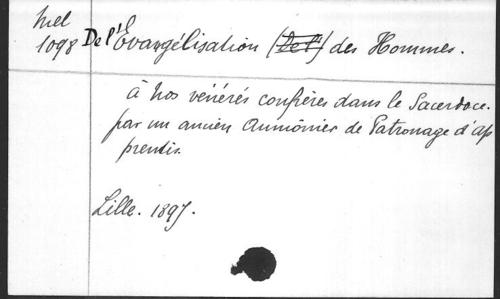 Mel
1098 De l'Evangélisation (De l') des Hommes.
à Nos vénérés confrères dans le Sacerdoce.
par un ancien Aumônier de Patronage d'Ap
prentis.
Lille. 1897.